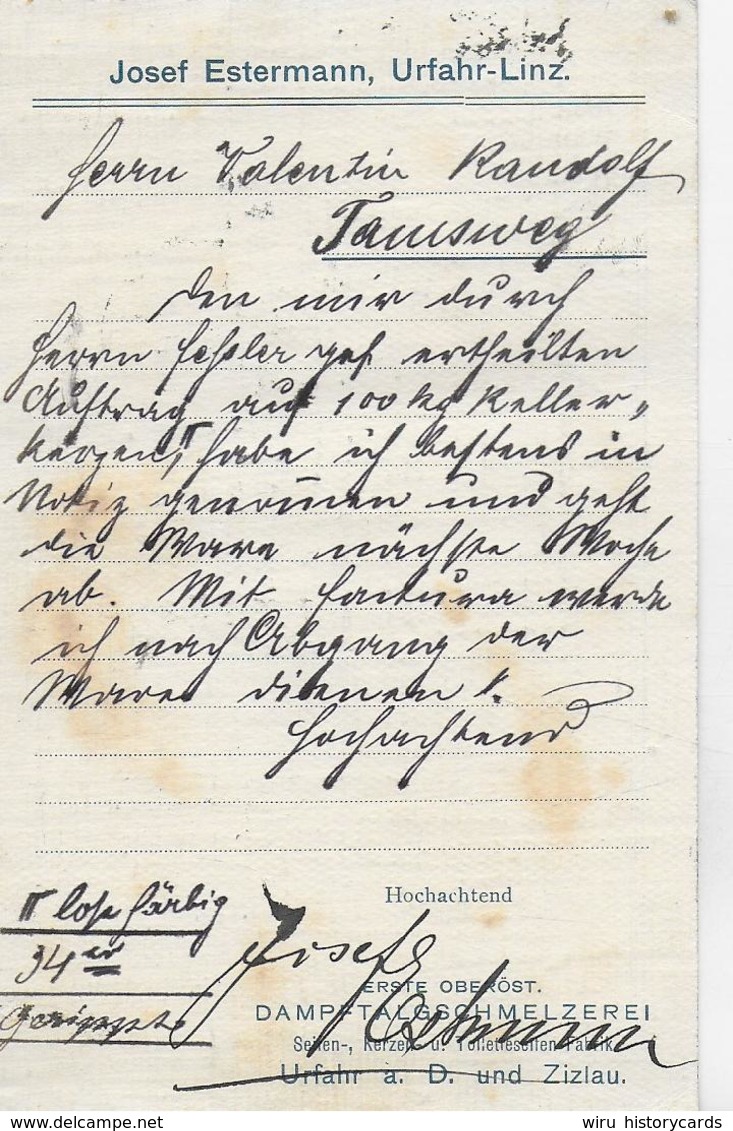 Josef Estermann, Urfahr-Linz.
Herrn Valentin Randolf
Tamsweg
Den mir durch
Herrn gef. ertheilten
Auftrag auf 100 kg Keller-
kerzen II habe ich bestens in
Notiz genom̄en und geht
die Ware nächste Woche
ab. Mit Factura werde
ich nach Abgang der
Ware dienen u.
Hochachtend
Hochachtend
II lose färbig
34er
Gerippte
Josef Estermann
ERSTE OBERÖST.
DAMPFTALGSCHMELZEREI
Seifen-, Kerzen- u. Toiletteseifen-Fabrik
Urfahr a. D. und Zizlau.
wiru historycards